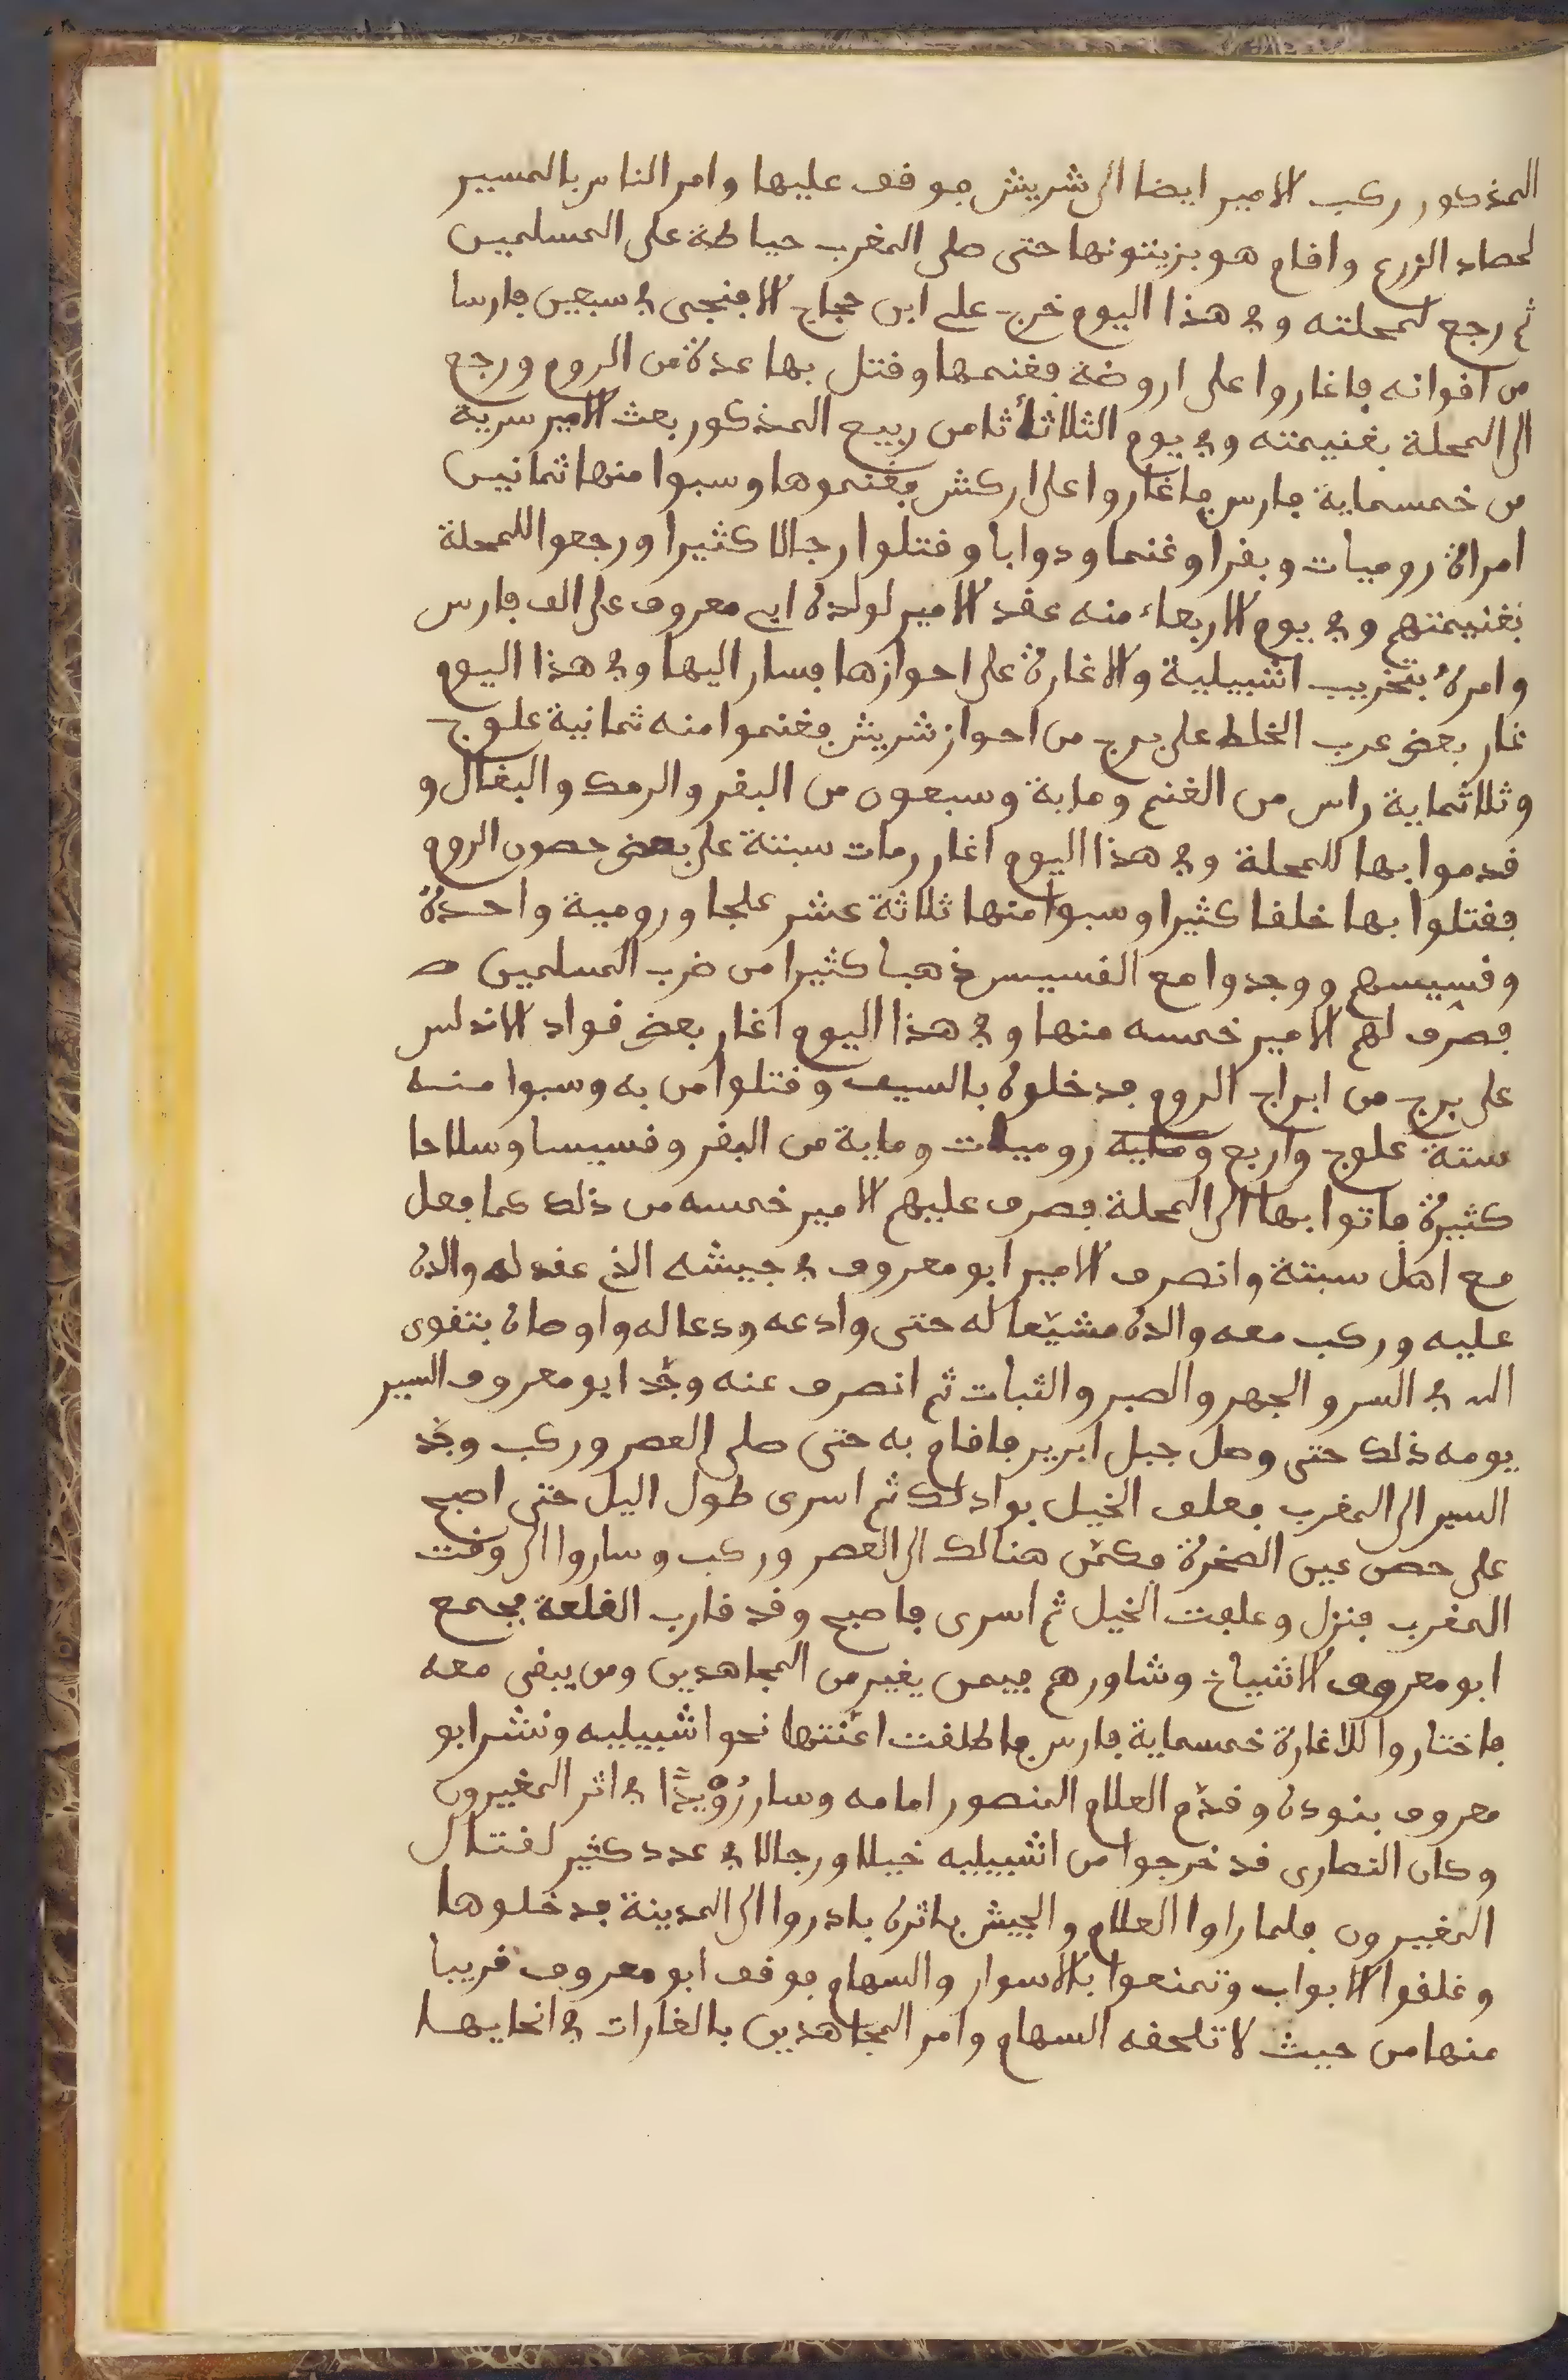 المذكور ركب الامير ايضا الى شريش فوقف عليها وامر الناس بالمسير
لحصاد الزرع واقام هو بزيتونها حتى صلى المغرب حياطة على المسلمين
ثم رجع لمحلته وفي هذا اليوم خرج على ابن حجاج الافنجى في سبعين فارسا
من اخوانه فاغاروا على اروضة فغنمها وقتل بها عدة من الروم ورجع
الى المحلة بغنيمته وفي يوم الثلاثا ثامن ربيع المذكور بعث الامير سرية
من خمسماية فارس فاغاروا على اركش فغنموها وسبوا منها ثمانين
امراة روميات وبقرا وغنما ودوابا وقتلوا رجالا كثيرا ورجعوا للمحلة
بغنيمتهم وفي يوم الاربعاء منه عقد الامير لولده ابي معروف على الف فارس
وامره بتخريب اشبيلية والاغارة على احوازها فسار اليها وفي هذا اليوم
غار بعض عرب الخلط على برج من احواز شريش فغنموا منه ثمانية علوج
وثلاثماية راس من الغنم وماية وسبعون من البقر والرمك والبغال و
قدموا بها للمحلة وفي هذا اليوم اغار رمات سبتة على بعض حصون الروم
فقتلوا بها خلقا كثيرا وسبوا منها ثلاثة عشر علجا ورومية واحدة
وقسيسهم ووجدوا مع القسيس ذهبا كثيرا من ضرب المسلمين
فصرف لهم الامير خمسه منها وفي هذا اليوم اغار بعض قواد الاندلس
على برج من ابراج الروم فدخلوه بالسيف وقتلوا من به وسبوا منه
ستة علوج واربع وماية روميات وماية من البقر وقسيسا وسلاحا
كثيرة فاتوا بها الى المحلة فصرف عليهم الامير خمسه من ذلك كما فعل
مع اهل سبتة وانصرف الامير ابو معروف في جيشه الذي عقد له والده
عليه وركب معه والده مشيّعا له حتى وادعه ودعا له واوصاه بتقوى
الله في السر والجهر والصبر والثبات ثم انصرف عنه وجّد ابو معروف السير
يومه ذلك حتى وصل جبل ابرير فاقام به حتى صلى العصر وركب وجّد
السير الى المغرب فعلف الخيل بواد لك ثم اسرى طول اليل حتى اصبح
على حصن عين الصخرة فكمّن هنالك الى العصر وركب وساروا الى وقت
المغرب فنزل وعلفت الخيل ثم اسرى فاصبح وقد قارب القلعة فجمع
ابو معروف الاشياخ وشاورهم فيمن يغير من المجاهدين ومن يبقى معه
فاختاروا للاغارة خمسماية فارس فاطلقت اعنّتها نحو اشبيليه ونشر ابو
معروف بنوده وقدّم العلام المنصور امامه وسار رُوَيْدًا في اثر المغيرون
وكان النصارى قد خرجوا من اشبيليه خيلا ورجالا في عدد كثير لقتال
المغيرون فلما راوا العلام والجيش باثره بادروا الى المدينة فدخلوها
وغلقوا الابواب وتمنعوا بالاسوار والسهام فوقف ابو معروف قريبا
منها من حيث لا تلحقه السهام وامر المجاهدين بالغارات في انحايها